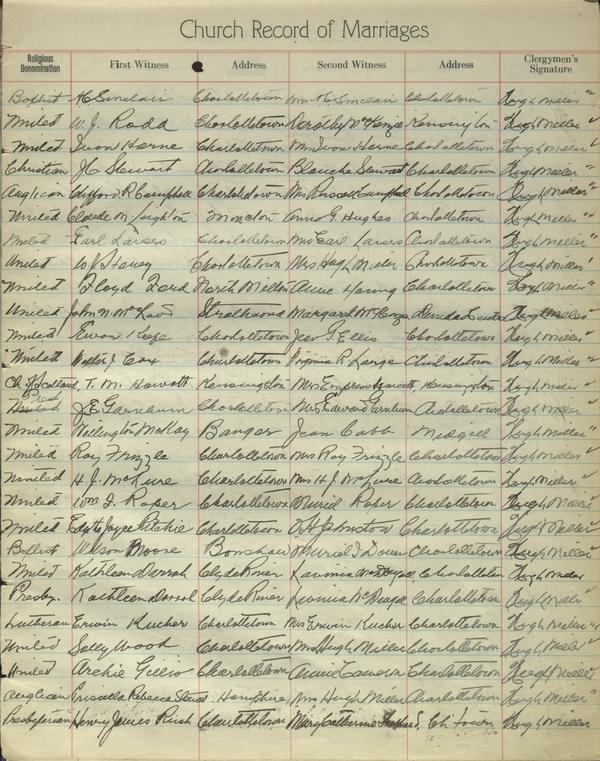 Church Record of Marriages
Religious Denomination First Witness Address Second Witness Address Clergymen's Signature
Baptist H Sinclair Charlottetown Mrs H Sinclair Charlottetown Hugh Miller "
United W. J. Rodd Charlottetown Dorothy McKenzie Kensington Hugh Miller "
United Ivon Herne Charlottetown Mrs Ivon Herne Charlottetown Hugh Miller "
Christian J C Stewart Charlottetown Blanche Stewart Charlottetown Hugh Miller "
Anglican Clifford R Campbell Charlottetown Mrs Russell Campbell Charlottetown Hugh Miller "
United Claude M. Leighton Moncton Anno G. Hughes Charlottetown Hugh Miller "
United Earl Larsers Charlottetown Mrs Earl Larsers Charlottetown Hugh Miller "
United W J Charlottetown Mrs Hugh Miller Charlottetown Hugh Miller "
United Floyd Ford North Milton Annie Charlottetown Hugh Miller "
United John N. McLeod Strathwood Margaret McKenzie Hugh Miller "
United Ewon Keefe Charlottetown Jean F. Ellis Charlottetown Hugh Miller "
United Walter J Cox Charlottetown Virginia R. Large Charlottetown Hugh Miller "
Ch of Scotland T. M. Howatt Kensington Mrs Howatt, Kensington Hugh Miller "
Pres United J. E. Garnhum Charlottetown Mrs Edward Garnhum Charlottetown Hugh Miller "
United Wellington McKay Bangor Jean Cobb Midgell Hugh Miller "
United Roy Frizzle Charlottetown Mrs Roy Frizzle Charlottetown Hugh Miller "
United H. J. McLure Charlottetown Mrs H. J. McLure Charlottetown Hugh Miller "
United Wm J. Roper Charlottetown Muriel Roper Charlottetown Hugh Miller "
United Edith Joyce Ritchie Charlottetown O H Johnston Charlottetown Hugh Miller "
Baptist Wilson Moore Bonshaw Muriel I Charlottetown Hugh Miller "
United Kathleen Darrah Clyde River Lavinia McDougall, Charlottetown Hugh Miller
Presby. Kathleen Darrah Clyde River Lavinia McDougall Charlottetown Hugh Miller "
Lutheran Erwin Kucher Charlottetown Mrs Erwin Kucher Charlottetown Hugh Miller "
United Sally Wood Charlottetown Mrs Hugh Miller Charlottetown Hugh Miller "
United Archie Gillis Charlottetown Annie Cameron Charlottetown Hugh Miller "
Anglican Priscilla Rebecca Hampshire, Mrs Hugh Miller Charlottetown Hugh Miller "
Presbyterian Henry James Charlottetown Mary Catherine Ch'town Hugh Miller